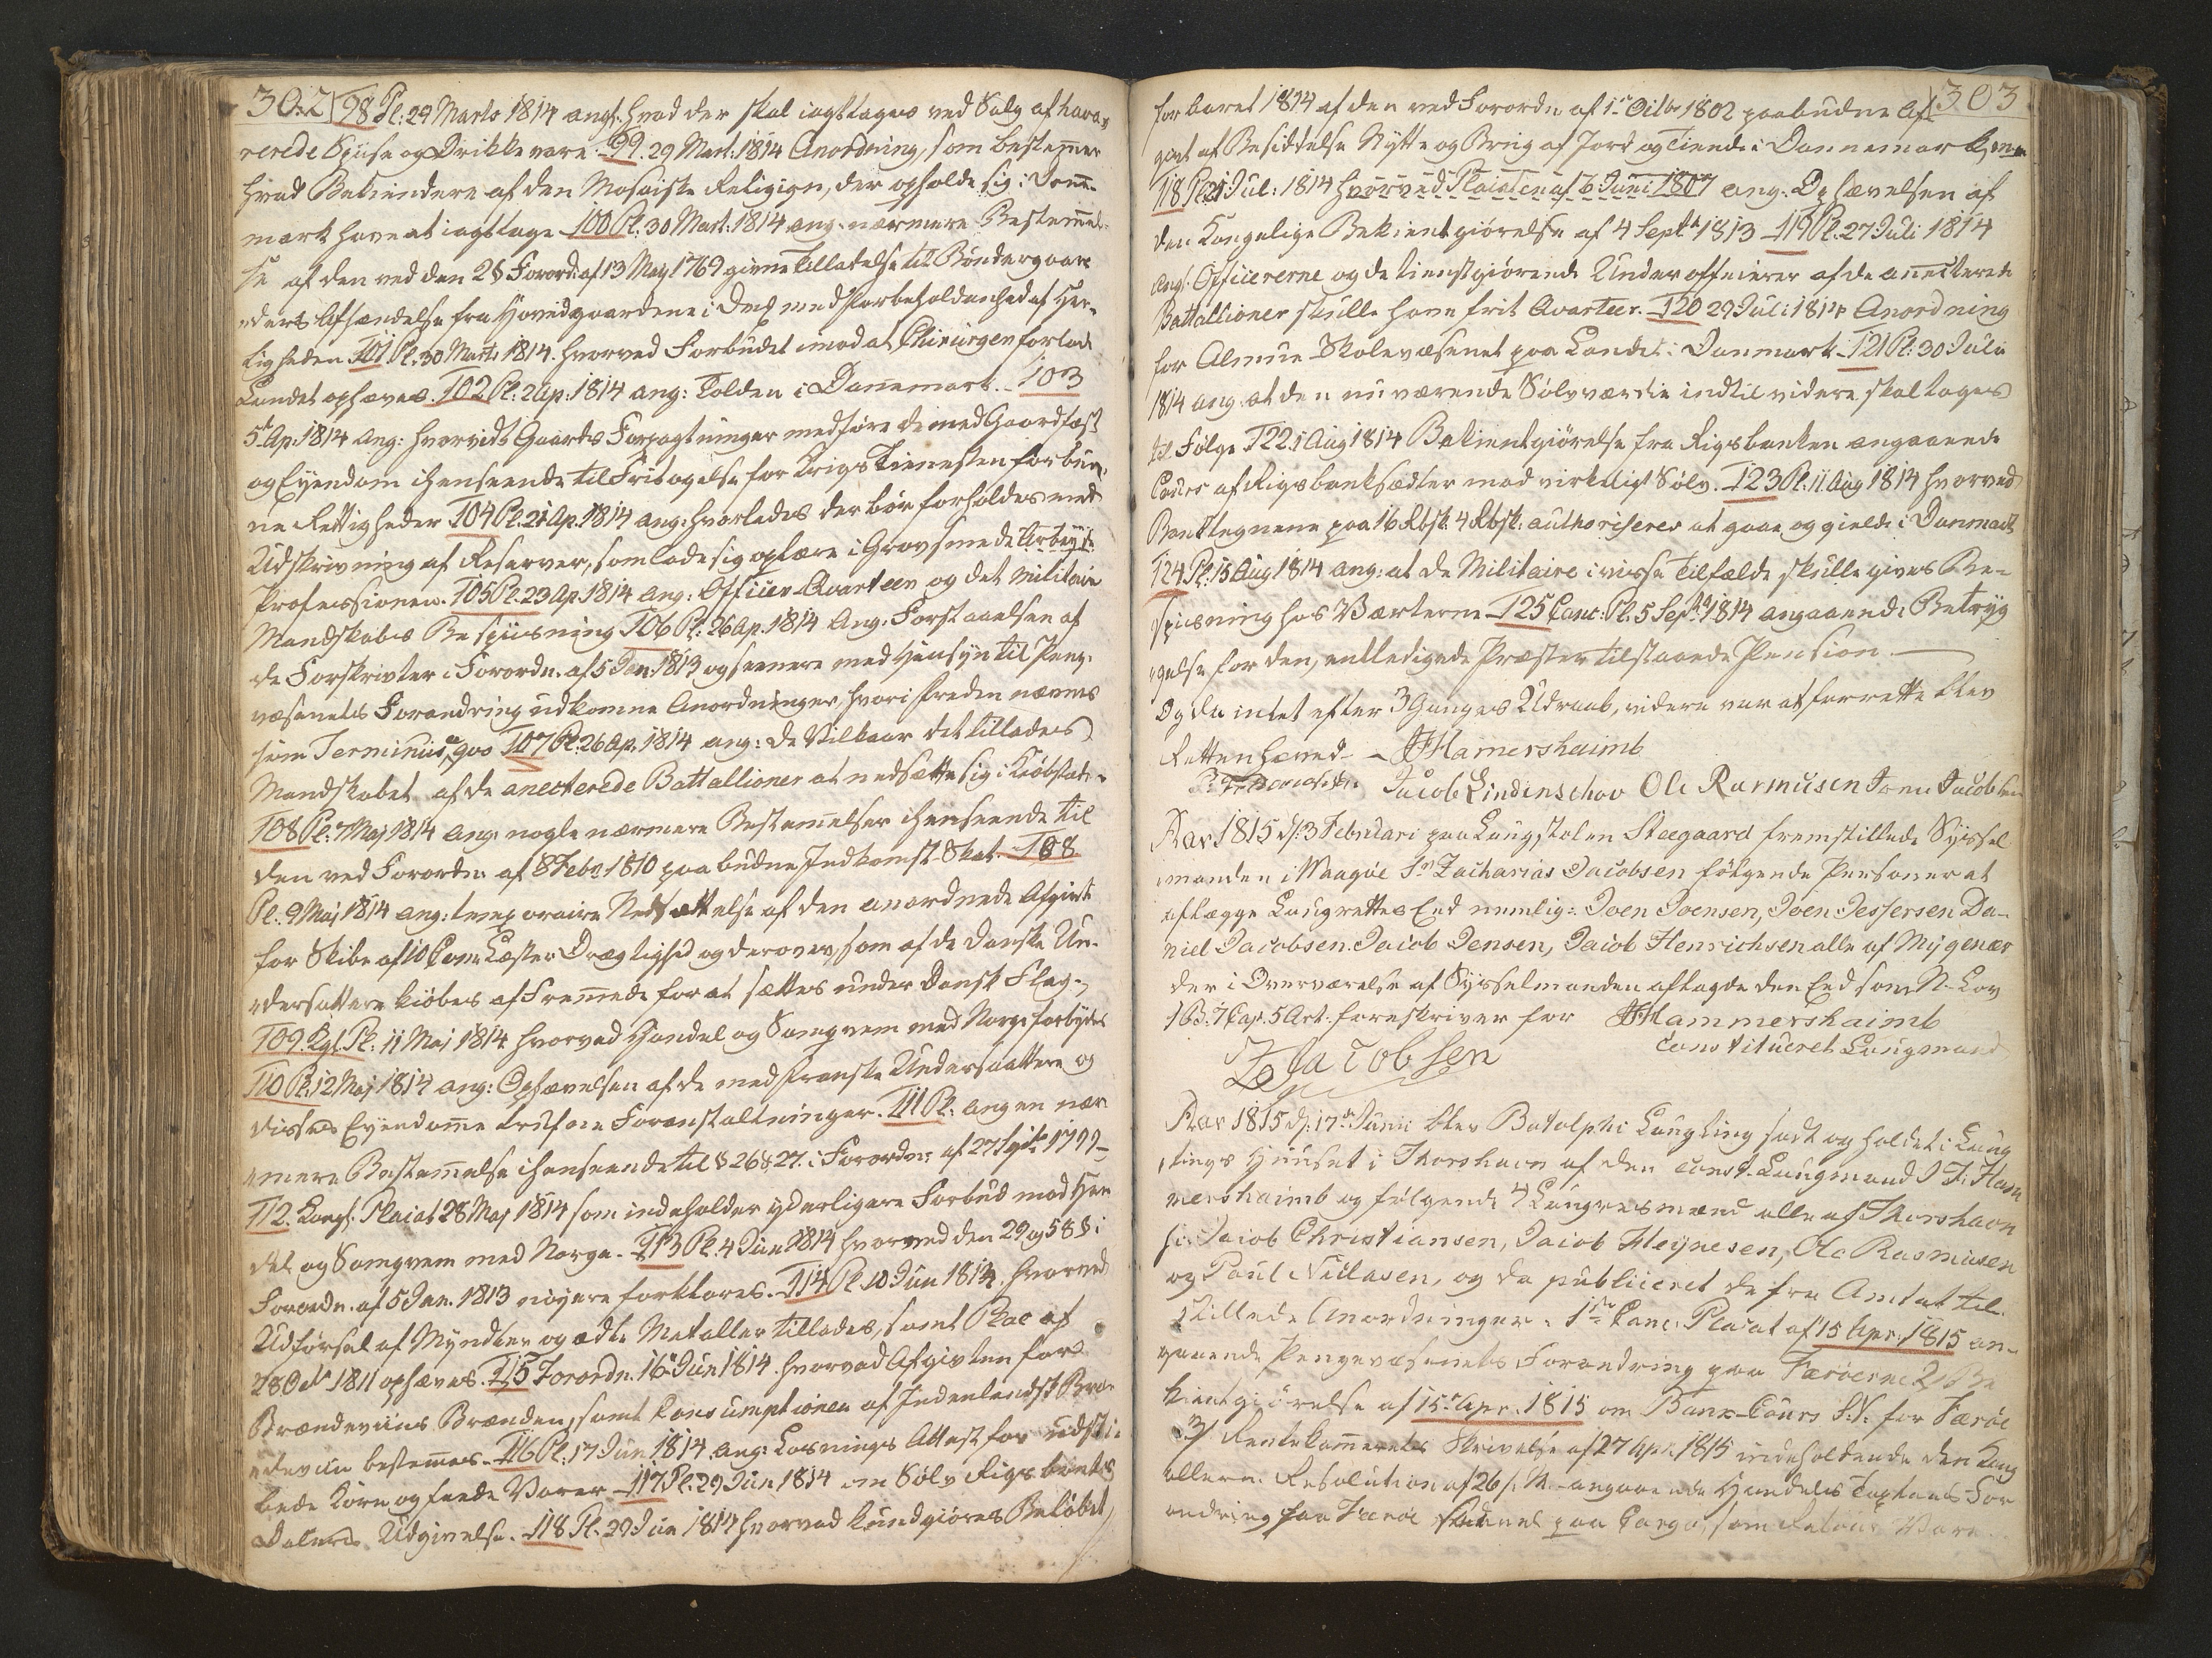 302
98 Pl: 29 Marts 1814 ang: hvad der skal iagttages ved Salg af hava-
rerede Spise og Drikkevare. 99. 29 Mart: 1814 Anordning, som bestemmer
hvad Bekiendere af den Mosaiske Religion, der opholde sig i Danne-
mark have at iagttage 100 Pl: 30 Mart: 1814 ang: nærmere Bestemmel-
se af den ved den 28 Forord: af 13 Maj 1769 givne Tilladelse til Bøndergaar-
ders Afhændelse fra Hovedgaardene i med Forbeholdenhed af Her-
ligheden 101 Pl: 30 Mart: 1814. hvorved Forbudet imod at Chirurger forlade
Landet ophæves. 102 Pl: 2 Ap: 1814 ang: Tolden i Dannemark. 103
5te Ap: 1814 ang: hvorvidt Gaards Forpagtninger medføre de med Gaardfæst
og Eyendom ihenseende til Fritagelse for Krigs Tienesten forbun-
ne Rettigheder 104 Pl: 21 Ap. 1814 ang: hvorledes der bør forholdes med
Udskrivning af Reserver, som lade sig oplære i Grovsmede Arbeyde
Professionen. 105 Pl: 23 Ap 1814 ang: Officier Qvarteer og det Militaire
Mandskabs Bespiisning 106 Pl: 26 Ap. 1814 Ang: Forstaaelsen af
de Forskrivter i Forordn. af 5 Jan: 1813 og senere med Hensyn til Penge-
væsenets Forandring udkomne Anordninger, hvori Freden nævnes
som Terminus a qvo 107 Pl: 26 Ap. 1814 ang: de Vilkaar det tillades
Mandskabet af de anecterede Battallioner at nedsætte sig i Kiøbstæder
108 Pl: 7 Maj 1814 ang: nogle nærmere Bestemmelser ihenseende til
den ved Forordn: af 8 Febr 1810 paabudne Indkomst-Skat. 108
Pl: 9 Maj 1814 ang: temporaire Nedsættelse af den anordnede Afgivt
for Skibe af 10 Com: Læster Drægtighed og derover, som af de Danske Un-
dersattere kiøbes af Fremmede for at sættes under Dansk Flag.
109. Kgl. Pl: 11 Maj 1814 hvorved Handel og Samqvem med Norge forbydes
110 Pl: 12 Maj 1814 ang: Ophævelsen af de med Franske Undersaattere og
disses Eyendomme trufne Foranstaltninger. 111 Pl: ang en nær-
mere Bestemmelse ihenseende til § 26 & 27. i Forordn: af 27 Sept: 1799
112. Kongl: Placat 28 Maj 1814 som indeholder yderligere Forbud mod Han-
del og Samqvem med Norge. 113 Pl: 4 Jun 1814 hvorved den 29 og 58 § i
Forordn. af 5 Jan. 1813 nøyere forklares. 114 Pl 10 Jun 1814. hvorved
Udførsel af Myndter og ædle Metaller tillades, samt Plac af
28 Octr 1811 ophæves. 115 Forordn. 16 Jun 1814. hvorved Afgivten for
Brændeviins Brænden, samt Consumptionen af Indenlandsk Bræn-
deviin bestemmes. 116 Pl: 17 Jun 1814 ang: Losnings Attest for udskib-
bede Korn og feede Vare. 117 Pl: 29 Jun 1814 om Sølv Rigsbank
Dalers Udgivelse. 118 Pl. 29 Jun 1814 hvorved kundgiøres Beløbet
303
for Aaret 1814 af den ved Forordn af 1te Octbr 1802 paabudne Af-
givt af Besiddelse Nytte og Brug af Jord og Tiende i Dannemark
118 Pl 21 Jul: 1814 hvorved Placaten af 6 Juni 1807 ang: Ophævelsen af
den Kongelige Bekiendtgiørelse af 4 Septbr 1813 119 Pl: 27 Juli 1814
ang: Officererne og de tienstgiørende Underofficierer af de anecterede
Battallioner skulle have frit Qvarteer. 120 29 Juli 1814 Anordning
for Almue Skolevæsenet paa Landet i Danmark. 121 Pl: 30 Juli
1814 ang. at den nu værende Sølvværdie indtil videre skal tages
til Følge 122. 1 Aug 1814 Bekientgiørelse fra Rigsbanken angaaende
Cours af Rigsbanksedler mod virkeligt Sølv. 123 Pl: 11 Aug 1814 hvorved
Banktegnene paa 16 Rbsk: 4 Rbsk: authoriseres at gaae og gielde i Danmark
124 Pl: 15 Aug 1814 ang: at de Militaire i visse Tilfælde skulle gives Be-
spiisning hos Værterne 125 Canc: Pl: 5 Sept 1814 angaaende Betryg
gelse for den, entledigede Præster tilstaaede Pension.
Og da intet efter 3 Ganges Udraab, videre var at forrette blev
Retten hævet. JFHamershaimb
Jacob Lindenschov Ole Rasmusen Joen Jacobsen
Aar 1815 d: 3 Februari paa Laugstolen Steegaard fremstillede Syssel
manden i Waagøe Sr Zacharias Jacobsen følgende Personer at
aflægge Laugrettes Eed nemlig: Joen Joensen, Joen Jessersen Da-
niel Jacobsen. Jacob Jensen, Jacob Henrichsen alle af Mygenæs
der i Overværelse af Sysselmanden aflagde den Eed som N. Lov
1 B: 7 Cap. 5 Art: foreskriver for JFHammershaimb
constitueret Laugmand
ZJacobsen
Aar 1815 d: 17de Junii blev Botolphi Laugting sadt og holdet i Laug
tings Huuset i Thorshavn af den const. Laugmand J F: Ham
mershaimb og følgende 4 Laugretsmænd alle af Thorshavn
s: Jacob Christiansen, Jacob Heynesen, Ole Rasmusen
og Paul Niclasen, og da publiceret de fra Amtet til
stillede Anordninger. 1ste Canc: Placat af 15 Apr: 1815 an-
gaaende Pengevæsenets Forandring paa Færøerne 2) Be
kientgiørelse af 15 Apr. 1815 om Bank-Cours S.V. for Færøe
3) Rentekammerets Skrivelse af 27 Apr. 1815 indeholdende den Kong
allern. Resolution af 26 s. M. angaaende Handels Taxtens For
andring paa Færøe paa Cargo, som Retour Vare